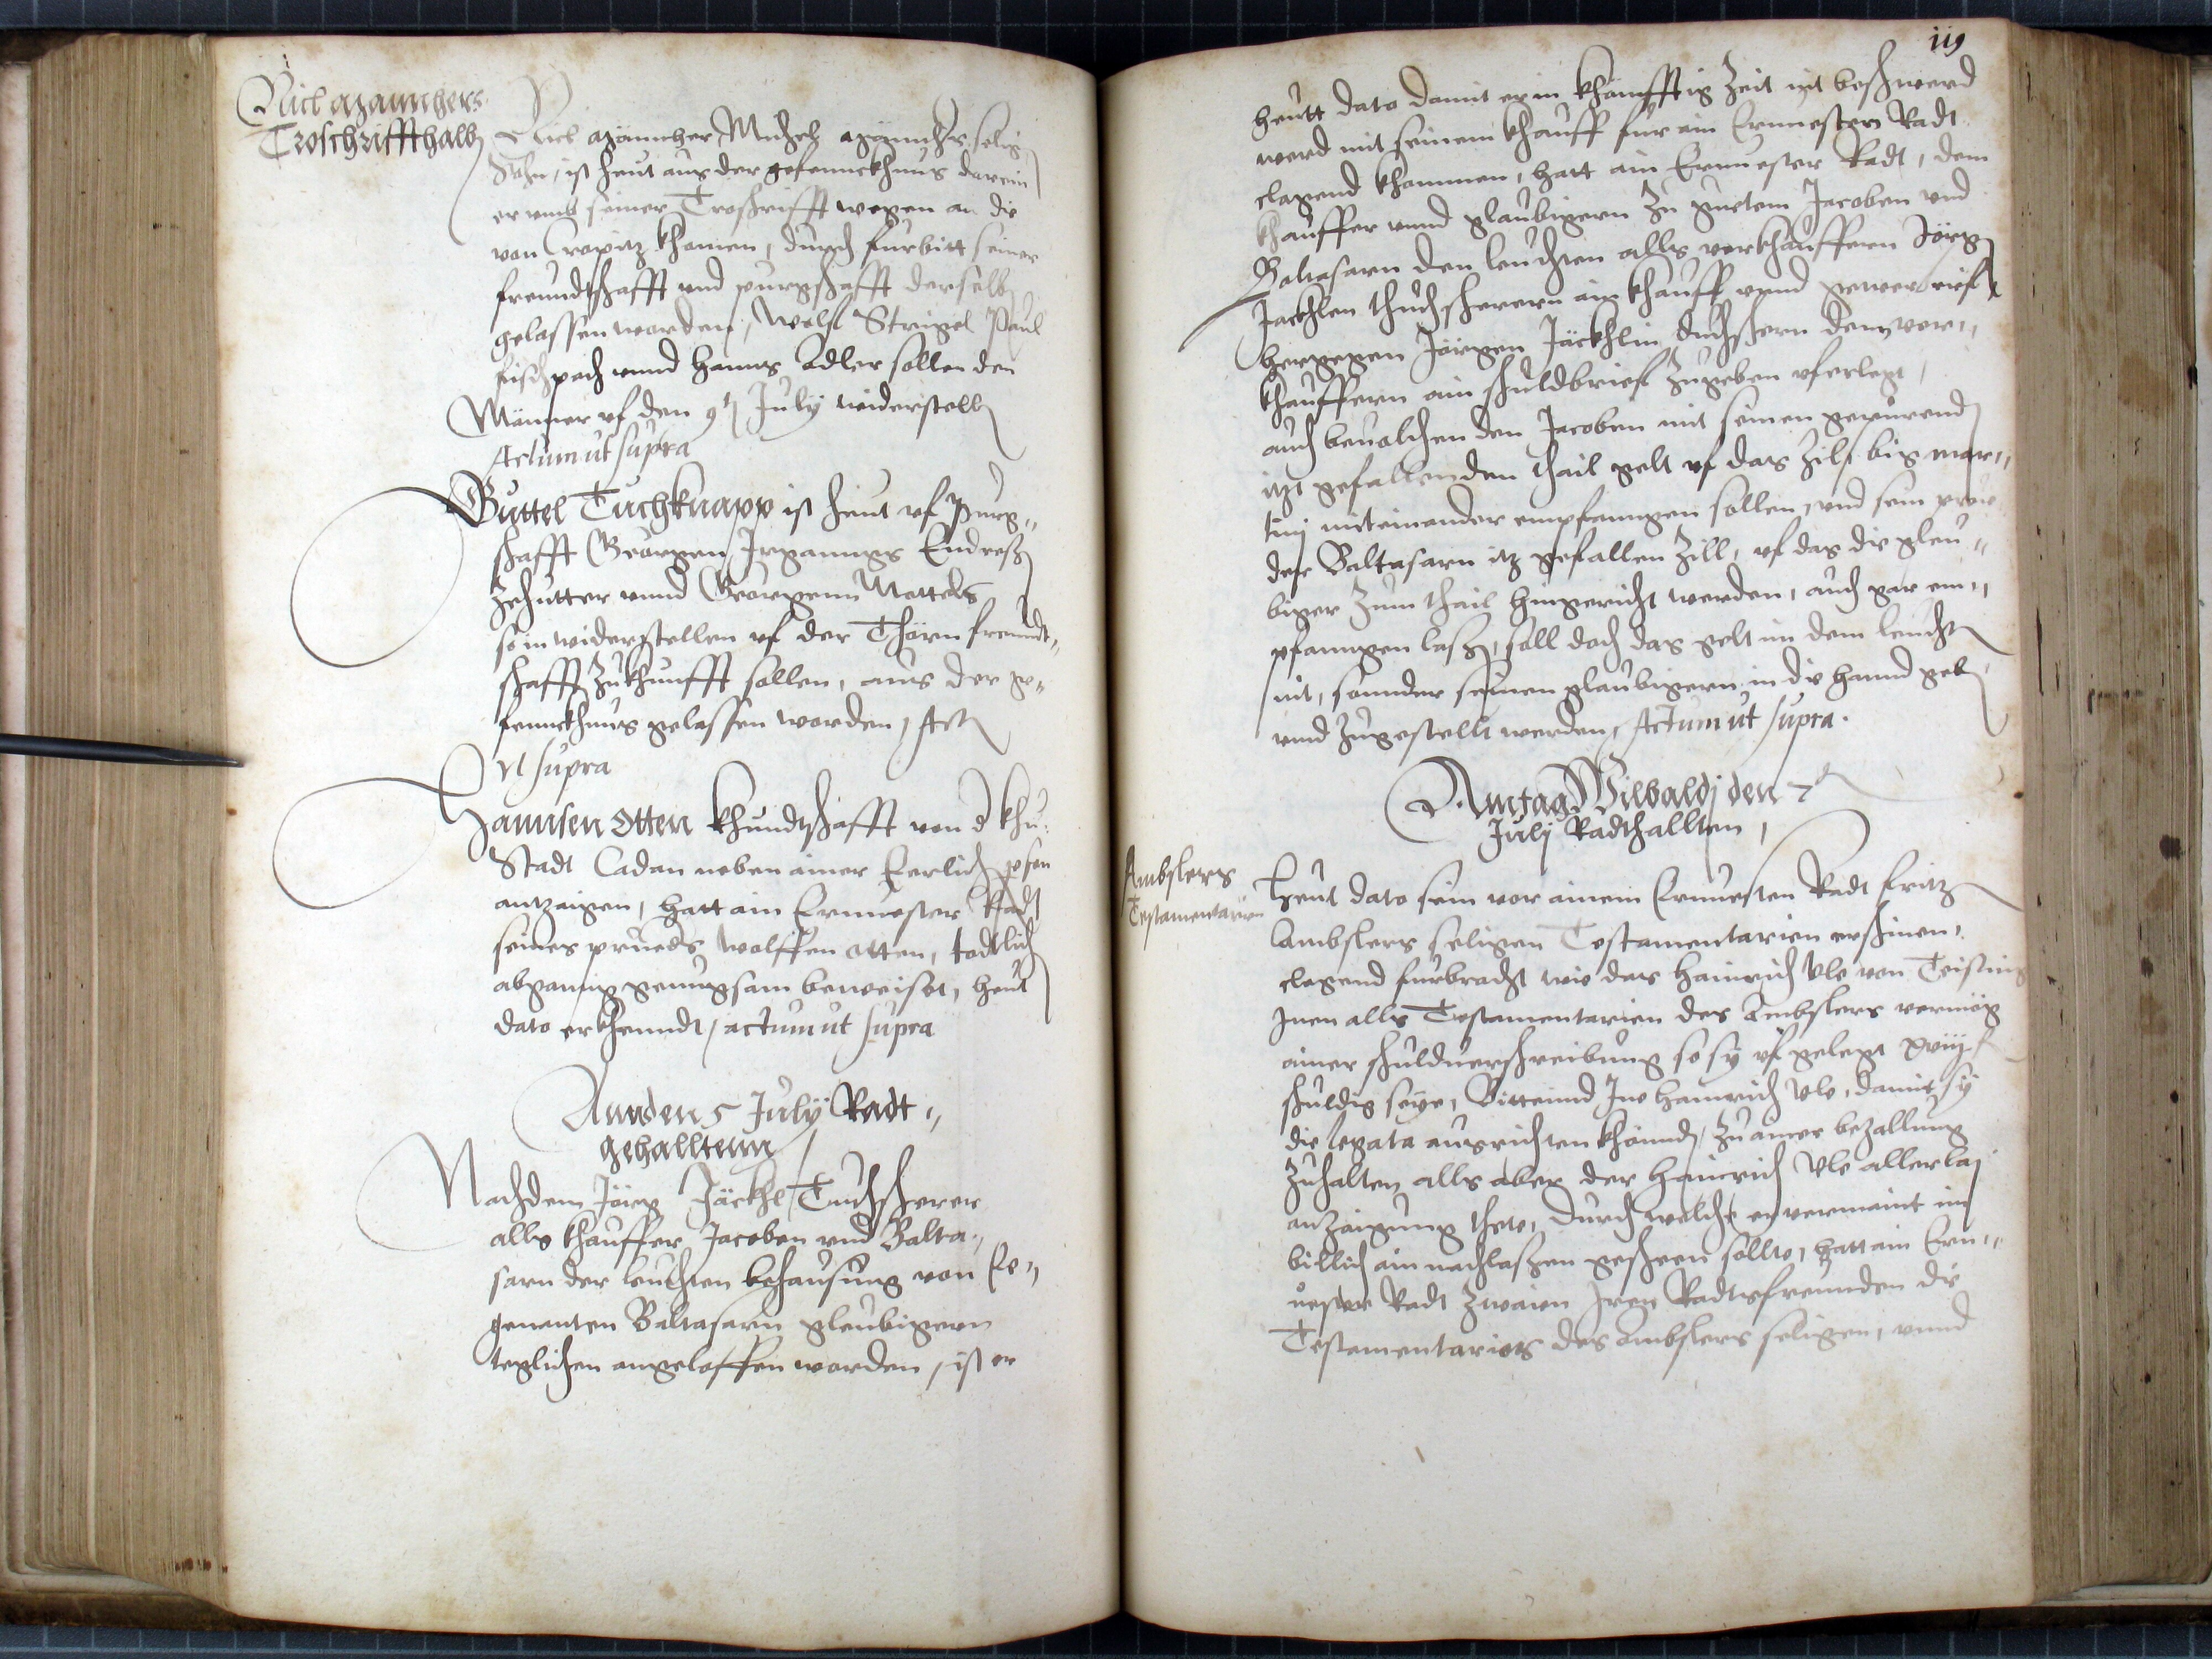 Nicl Manngers
Troschriffthalb
Nicl Männcher Michel Männchers selig
Sohn, ist heut aus der gefennckhnus darein
er umb seiner Troschrifft wegen an die
von Cropitz khomen, durch furbitt seiner
freundtschafft und purgschafft derselb
gelassen worden, Wolf Strigel Paul
fischpach unnd Hanns Adler sollen den
Männer uf den 9t July widerstelle
Actum ut supra
Guttel Tuchknapp ist heut uf Purg„
schafft Georgen Irgannngs Endres
Zehutter unnd Georgenn Mettels
so in widerstellen uf der Thorn freundt„
schafft Zukhunfft sollen, aus der ge„
fennckhnus gelassen worden, Act
Ut supra
Hannsen Otten khundtschafft von d khu:
Stadt Cadan neben ainer Eerlich
antzaigen, hatt ain Ernuester Radt
seines prueders Wolffen Otten, todtlich
abganng genugsam beweiset, heut
dato erkhenndt, actum ut supra
Am den 5 July Radt„
gehalltenn
Nachdem Jörg Jäckhl Tuchscherer
alls khauffer Jacoben und Balta„
sarn der leuchten behausung von Er„
genenten Baltasarn gleubigern
teglichen angeloffen worden, ist er
119
heutt dato damit er in khonfftig Zeit nit beschwerd
werd mit seinem khauff fur ain Ernuesten Radt
clagend khommen, hatt ain Ernuester Radt, dem
khauffer unnd glaubigern Zu guetem Jacoben und
Baltasarn den leuchten alls verkhauffern Jörg
Jackhlen thuchscherern ain khauff unnd gewer brief
hergegen Jörgen Jäckhlin duchschern dem ver„
khauffern ain schuldbrief Zugeben uferlegt,
auch beuolchen den Jacoben mit seinen gepurend
itzt gefallenden thail gelt uf das Zil bis mar„
tinj mit einander empfanngen sollen, und sein prue
der Baltasarn itz gefallen Zill, uf das die gleu„
biger Zum thail hingericht werden, auch gar em„
pfanngen lass, soll doch das gelt im dem leucht
nit, sonnder seinen glaubigern in die hannd geb
unnd Zugestellt werden, Actum ut supra.
Amtag Wilbaldj den 7
July Radthallten,
Ambslers
Testamentarien
Heut dato sein vor ainem Ernuesten Radt fritz
Ambslers seligen Testamentarien erschinen,
clagend furbracht wie das Hainrich Ule von Teising
Inen alls Testamentarien des Ambslers vermög
ainer schuldverschreibung so sy uf gelegt xviij f
schuldig seye, Bittennd Ine Hainrich Ule, damit sy
die legata ausrichten khonnd, zu ainer bezallung
Zuhalten, alls aber der Hainrich Ule allerlaj
anzaigung thete, durch welche er vermaint im
billich ain nachlassen geschehen sollte, hatt ain Ern„
uester Radt Zwaien Iren Radtsfreunden die
Testamentaries des Ambslers seligen, unnd